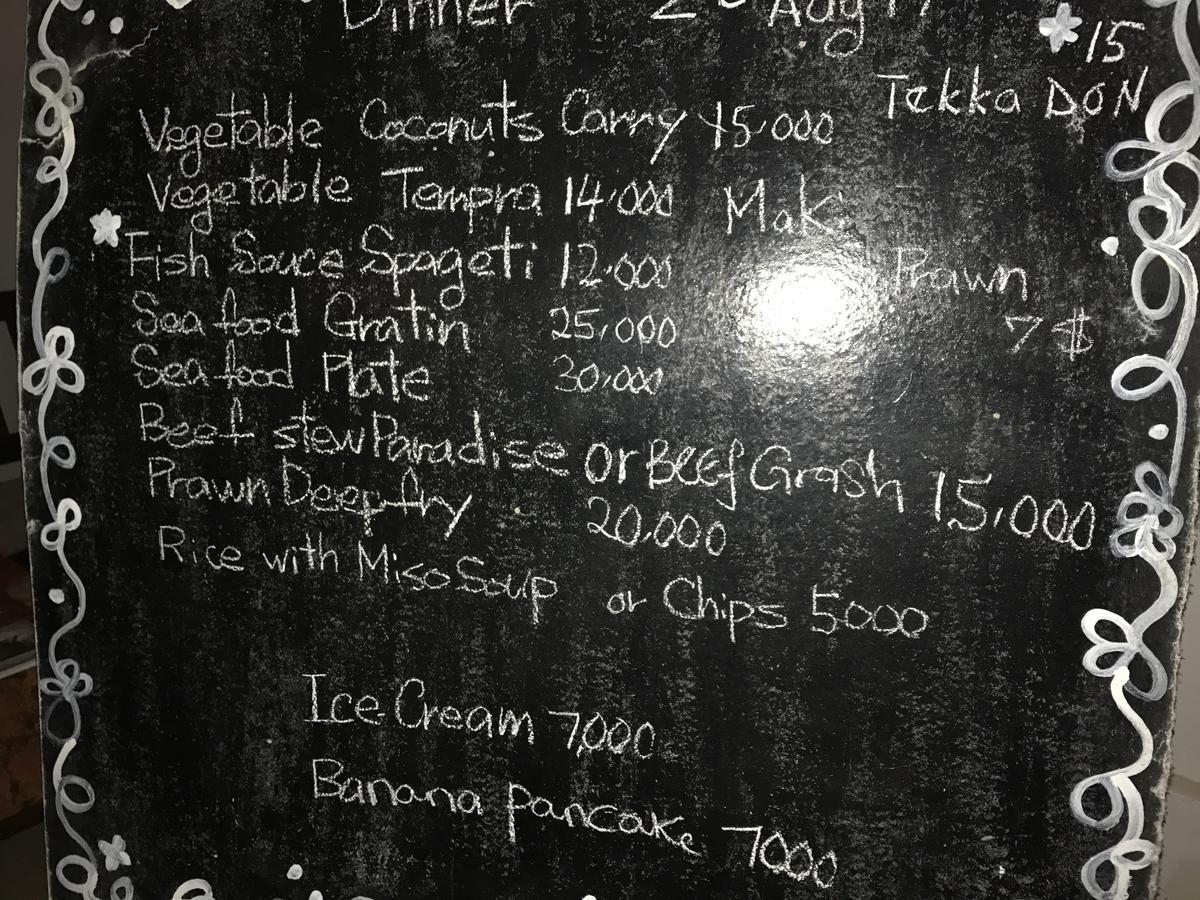 Dinner 2nd Aug 17
15
Tekka DON
Vegetable Coconuts Carry 15,000
Vegetable Tempra 14,000
Mak
Fish Sauce Spageti 12,000
Prawn
Sea food Gratin 25,000
7 $
Sea food Plate 30,000
Beef stew Paradise or Beef Grash 15,000
Prawn Deep fry 20,000
Rice with Miso Soup or Chips 5000
Ice Cream 7,000
Banana pancake 7000